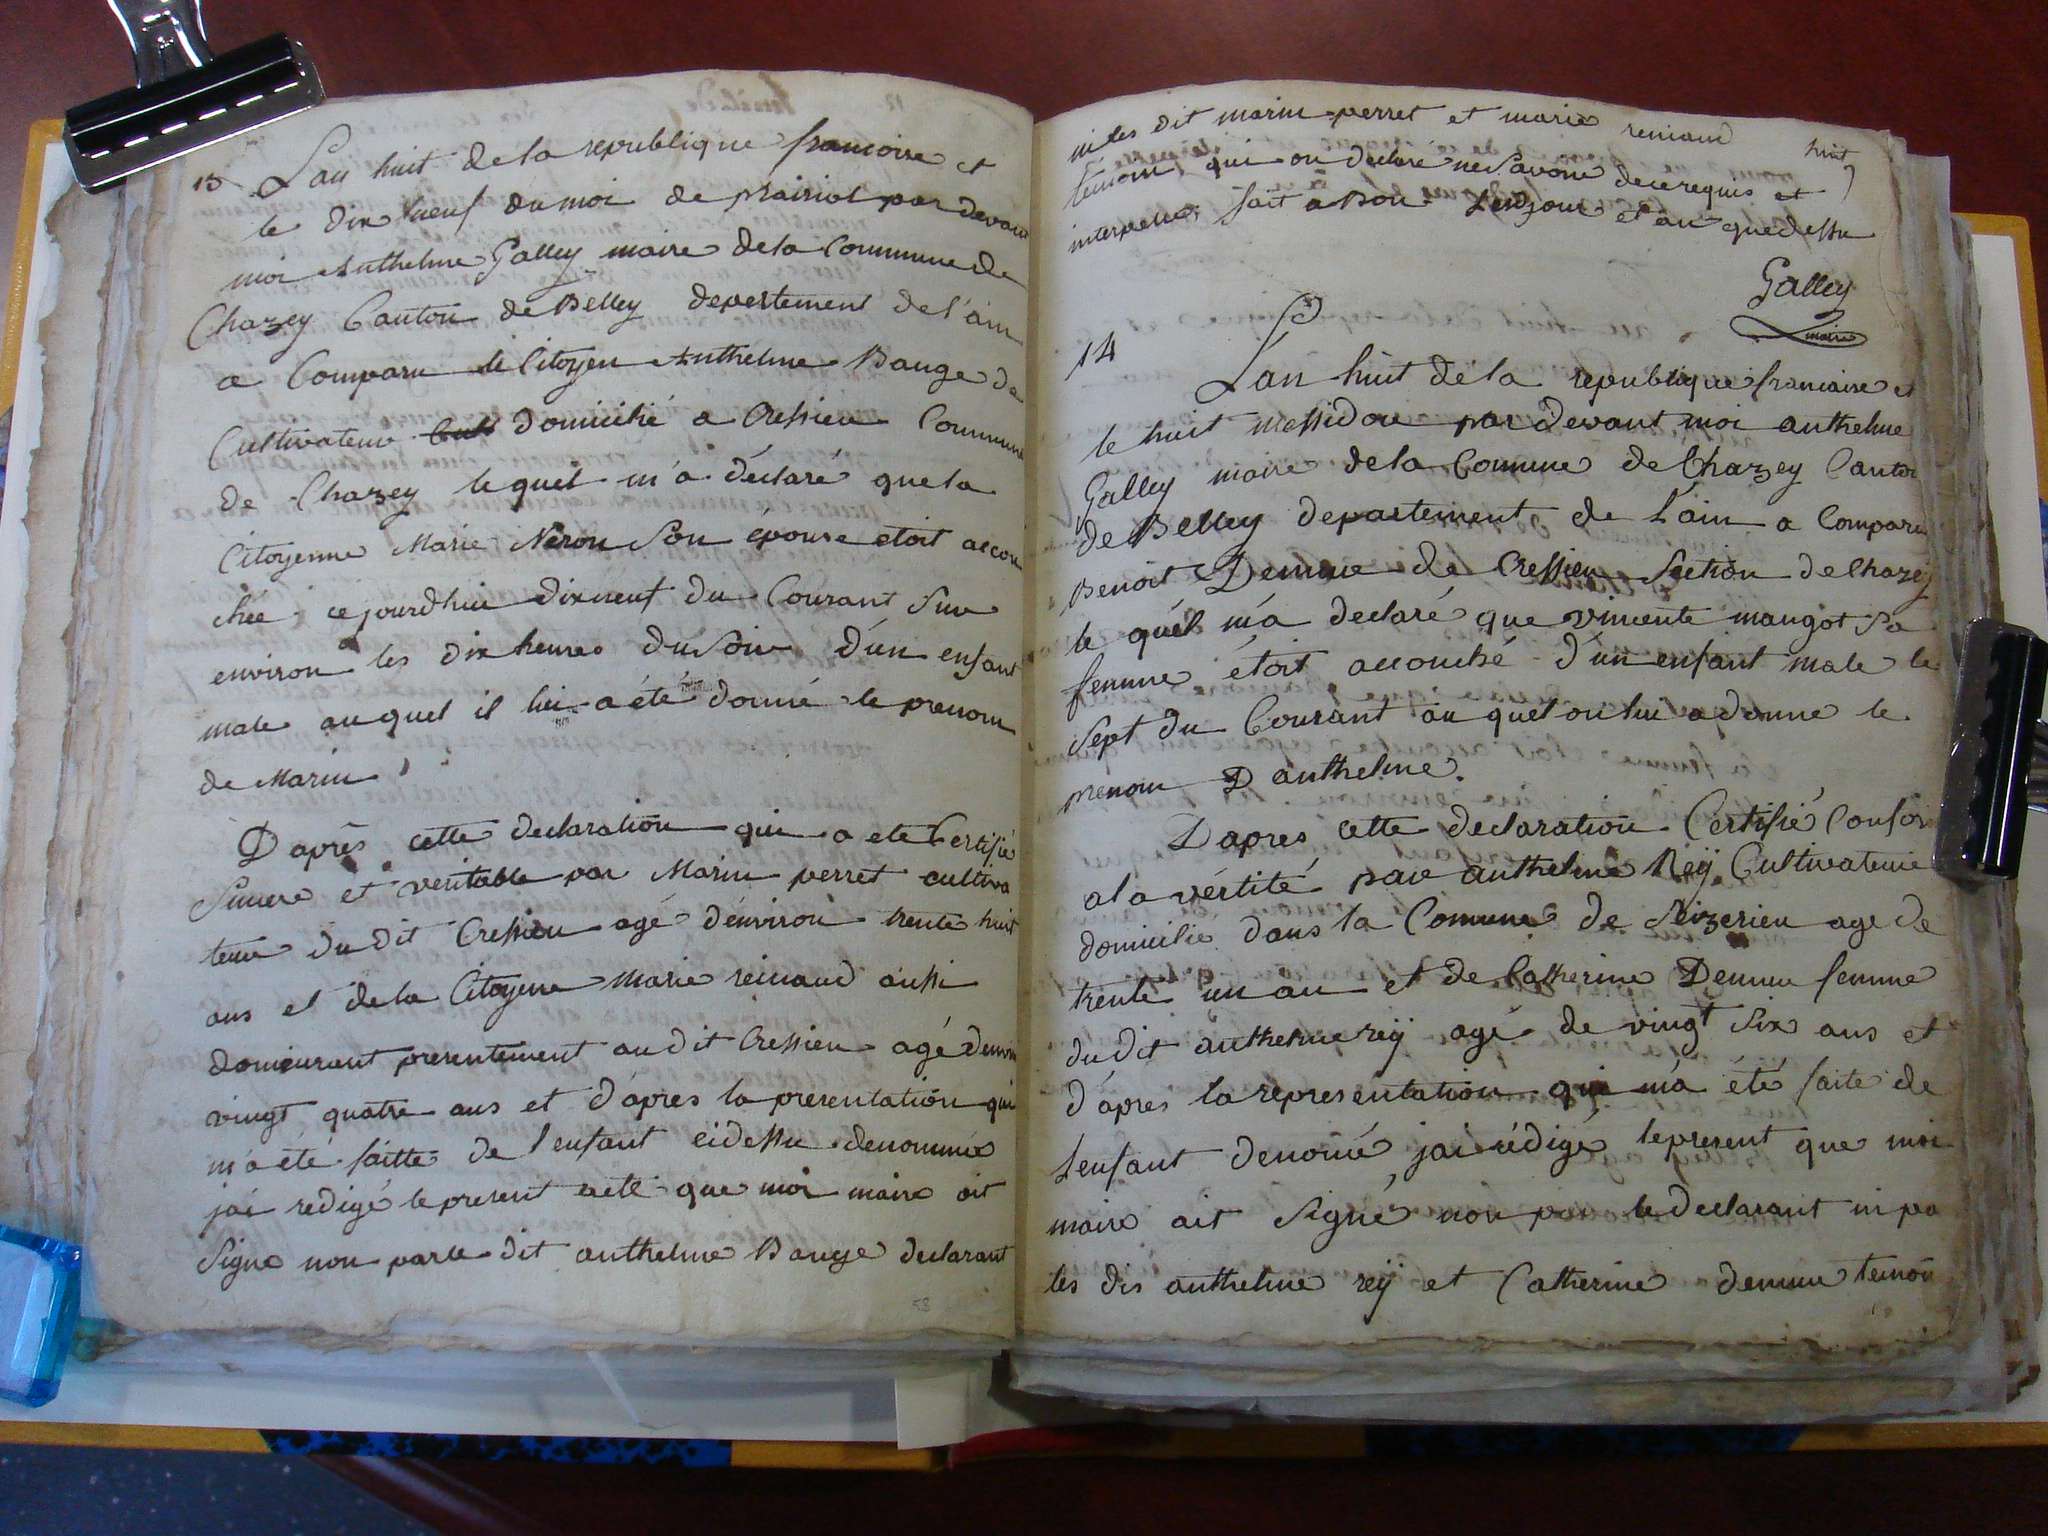 13 L'an huit de la republique francoise et
le dix neuf du moi de prairial par devant
moi Anthelme Galley maire dela Commune de
Chazey Canton de Belley departement de l'ain
a Comparu le Citoyen Anthelme Bauge de
Cultivateur domicilié a Cressieu Commune
de Chazey lequel m'a déclaré que la
Citoyenne Marie Neron Son épouse etoit accou
chée cejourdhui dixneuf du Courant Sur
environ les dix heures du Soir d'un enfant
male auquel il lui a été donné le prenom
de Marin
D'après cette declaration qui a ete Certifié
Sincere et veritable par Marin perret cultiva
teur du dit Cressieu agé d'environ trente huit
ans et de la Citoyene Marie reinaud aussi
demeurant presentement au dit Cressieu agé denviron
vingt quatre ans et d'apres la presentation qui
m'a été faitte de l'enfant cidessu denommé
jai redigé le present acte que moi maire ait
Signe non par le dit anthelme Bauge declarant
ni les dit marin perret et marie reinaud huit
temoin qui on declaré ne Savoir de ce requis et
interpellé, fait a Bon Lesdjour et an que dessu
Galley
maire
14
L'an huit de la republique francaise et
le huit messidor par devant moi anthelme
Galley maire dela Comune de Chazey Canton
de Belley departement de L'ain a Comparu
Benoit Demure de Cressieu Section de Chazey
le quel m'a declaré que vincente maugot Sa
femme étoit accouché d'un enfant male le
Sept du Courant au quel on lui a donne le
prenom D'anthelme.
D'apres cette declaration Certifié Confor
a la vértité par anthelme Reÿ Cultivateur
domicilié dans la Comune de Seizerieu age de
trente un an et de Catherine Demure femme
du dit anthelme reÿ agé de vingt Six ans et
d'apres la representation qui m'a été faite de
L'enfant denomé jai rédigé le present que moi
maire ait Signé non par le declarant ni pa
les dis anthelme reÿ et Catherine demure temoin
58